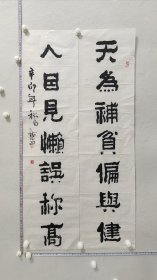 天為補貧偏與健
人因見懶誤称高
辛卯年